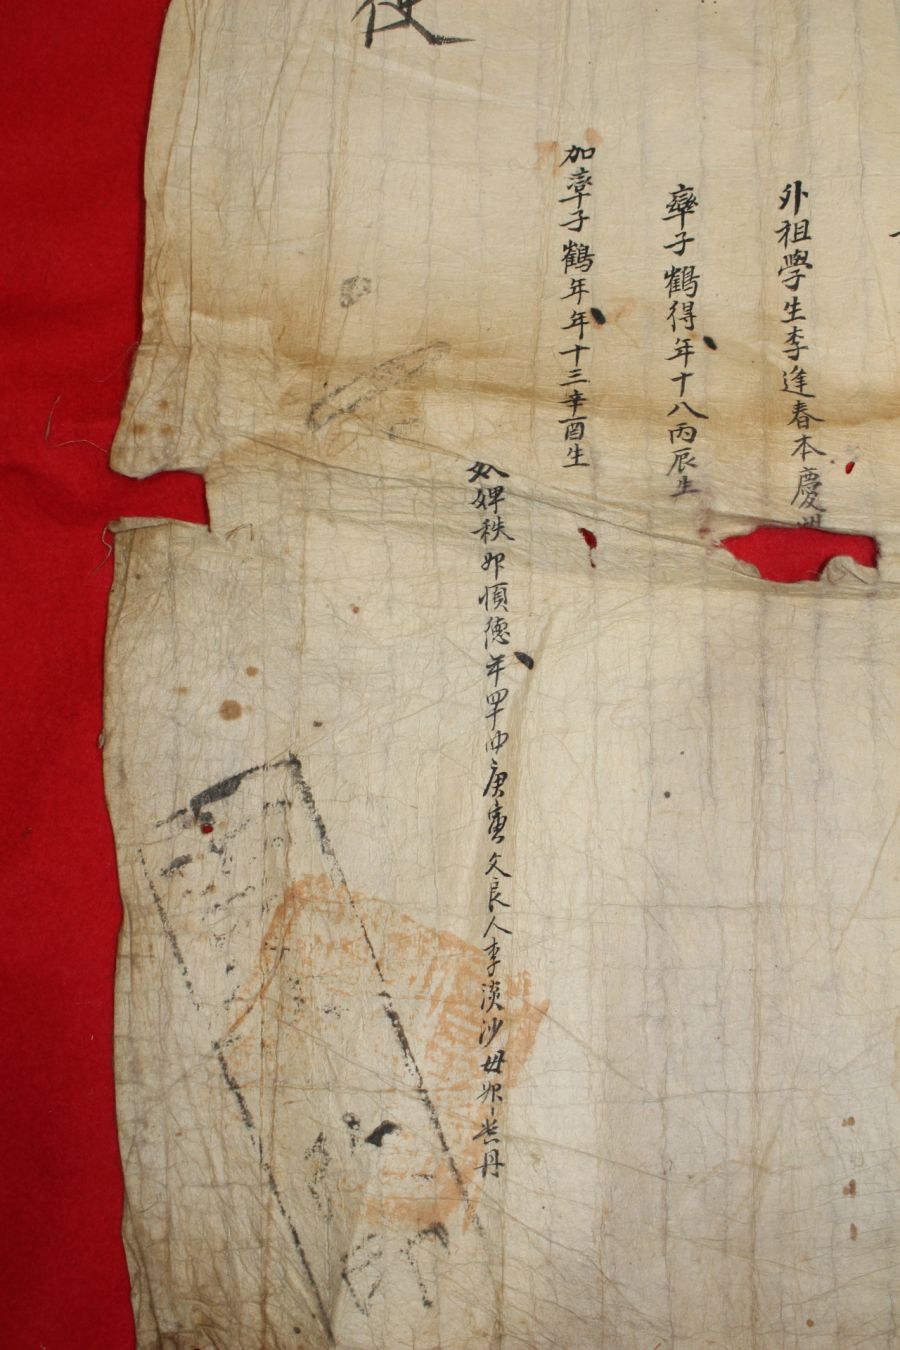 外祖學生李逢春本慶州
率子鶴得年十八丙辰生
加率子鶴年年十三辛酉生
奴婢秩婢順德年四十申庚寅父良人李淡沙母婢丹
使